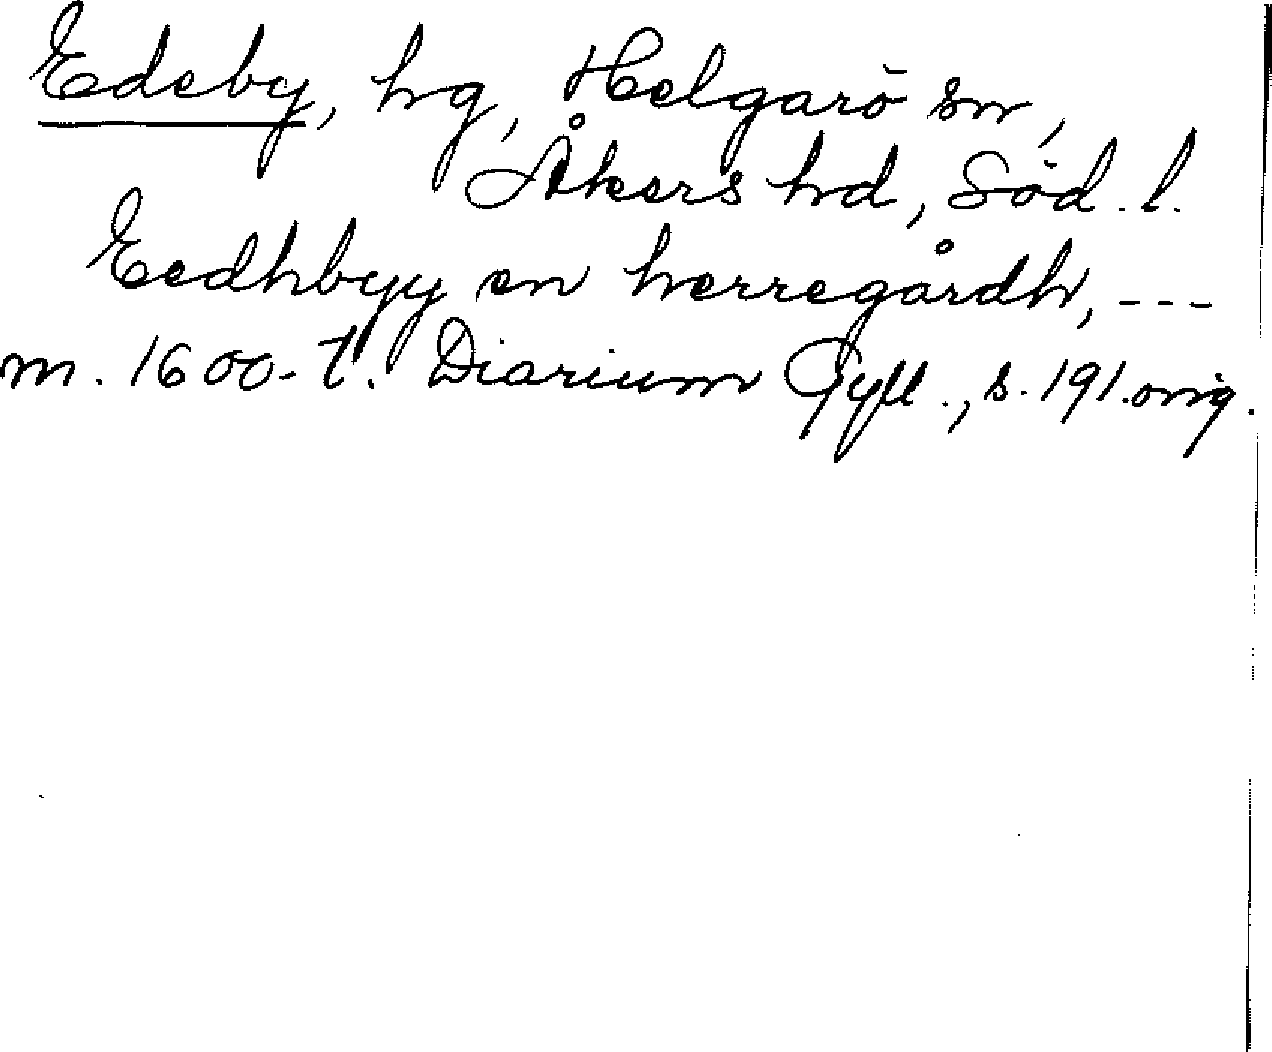 Edeby, hg, Helgarö sn,
Åkers hd, Söd. l.
Eedhbyy en herregårdh, ---
m. 1600-t. Diarium Gyll., s. 191. orig.